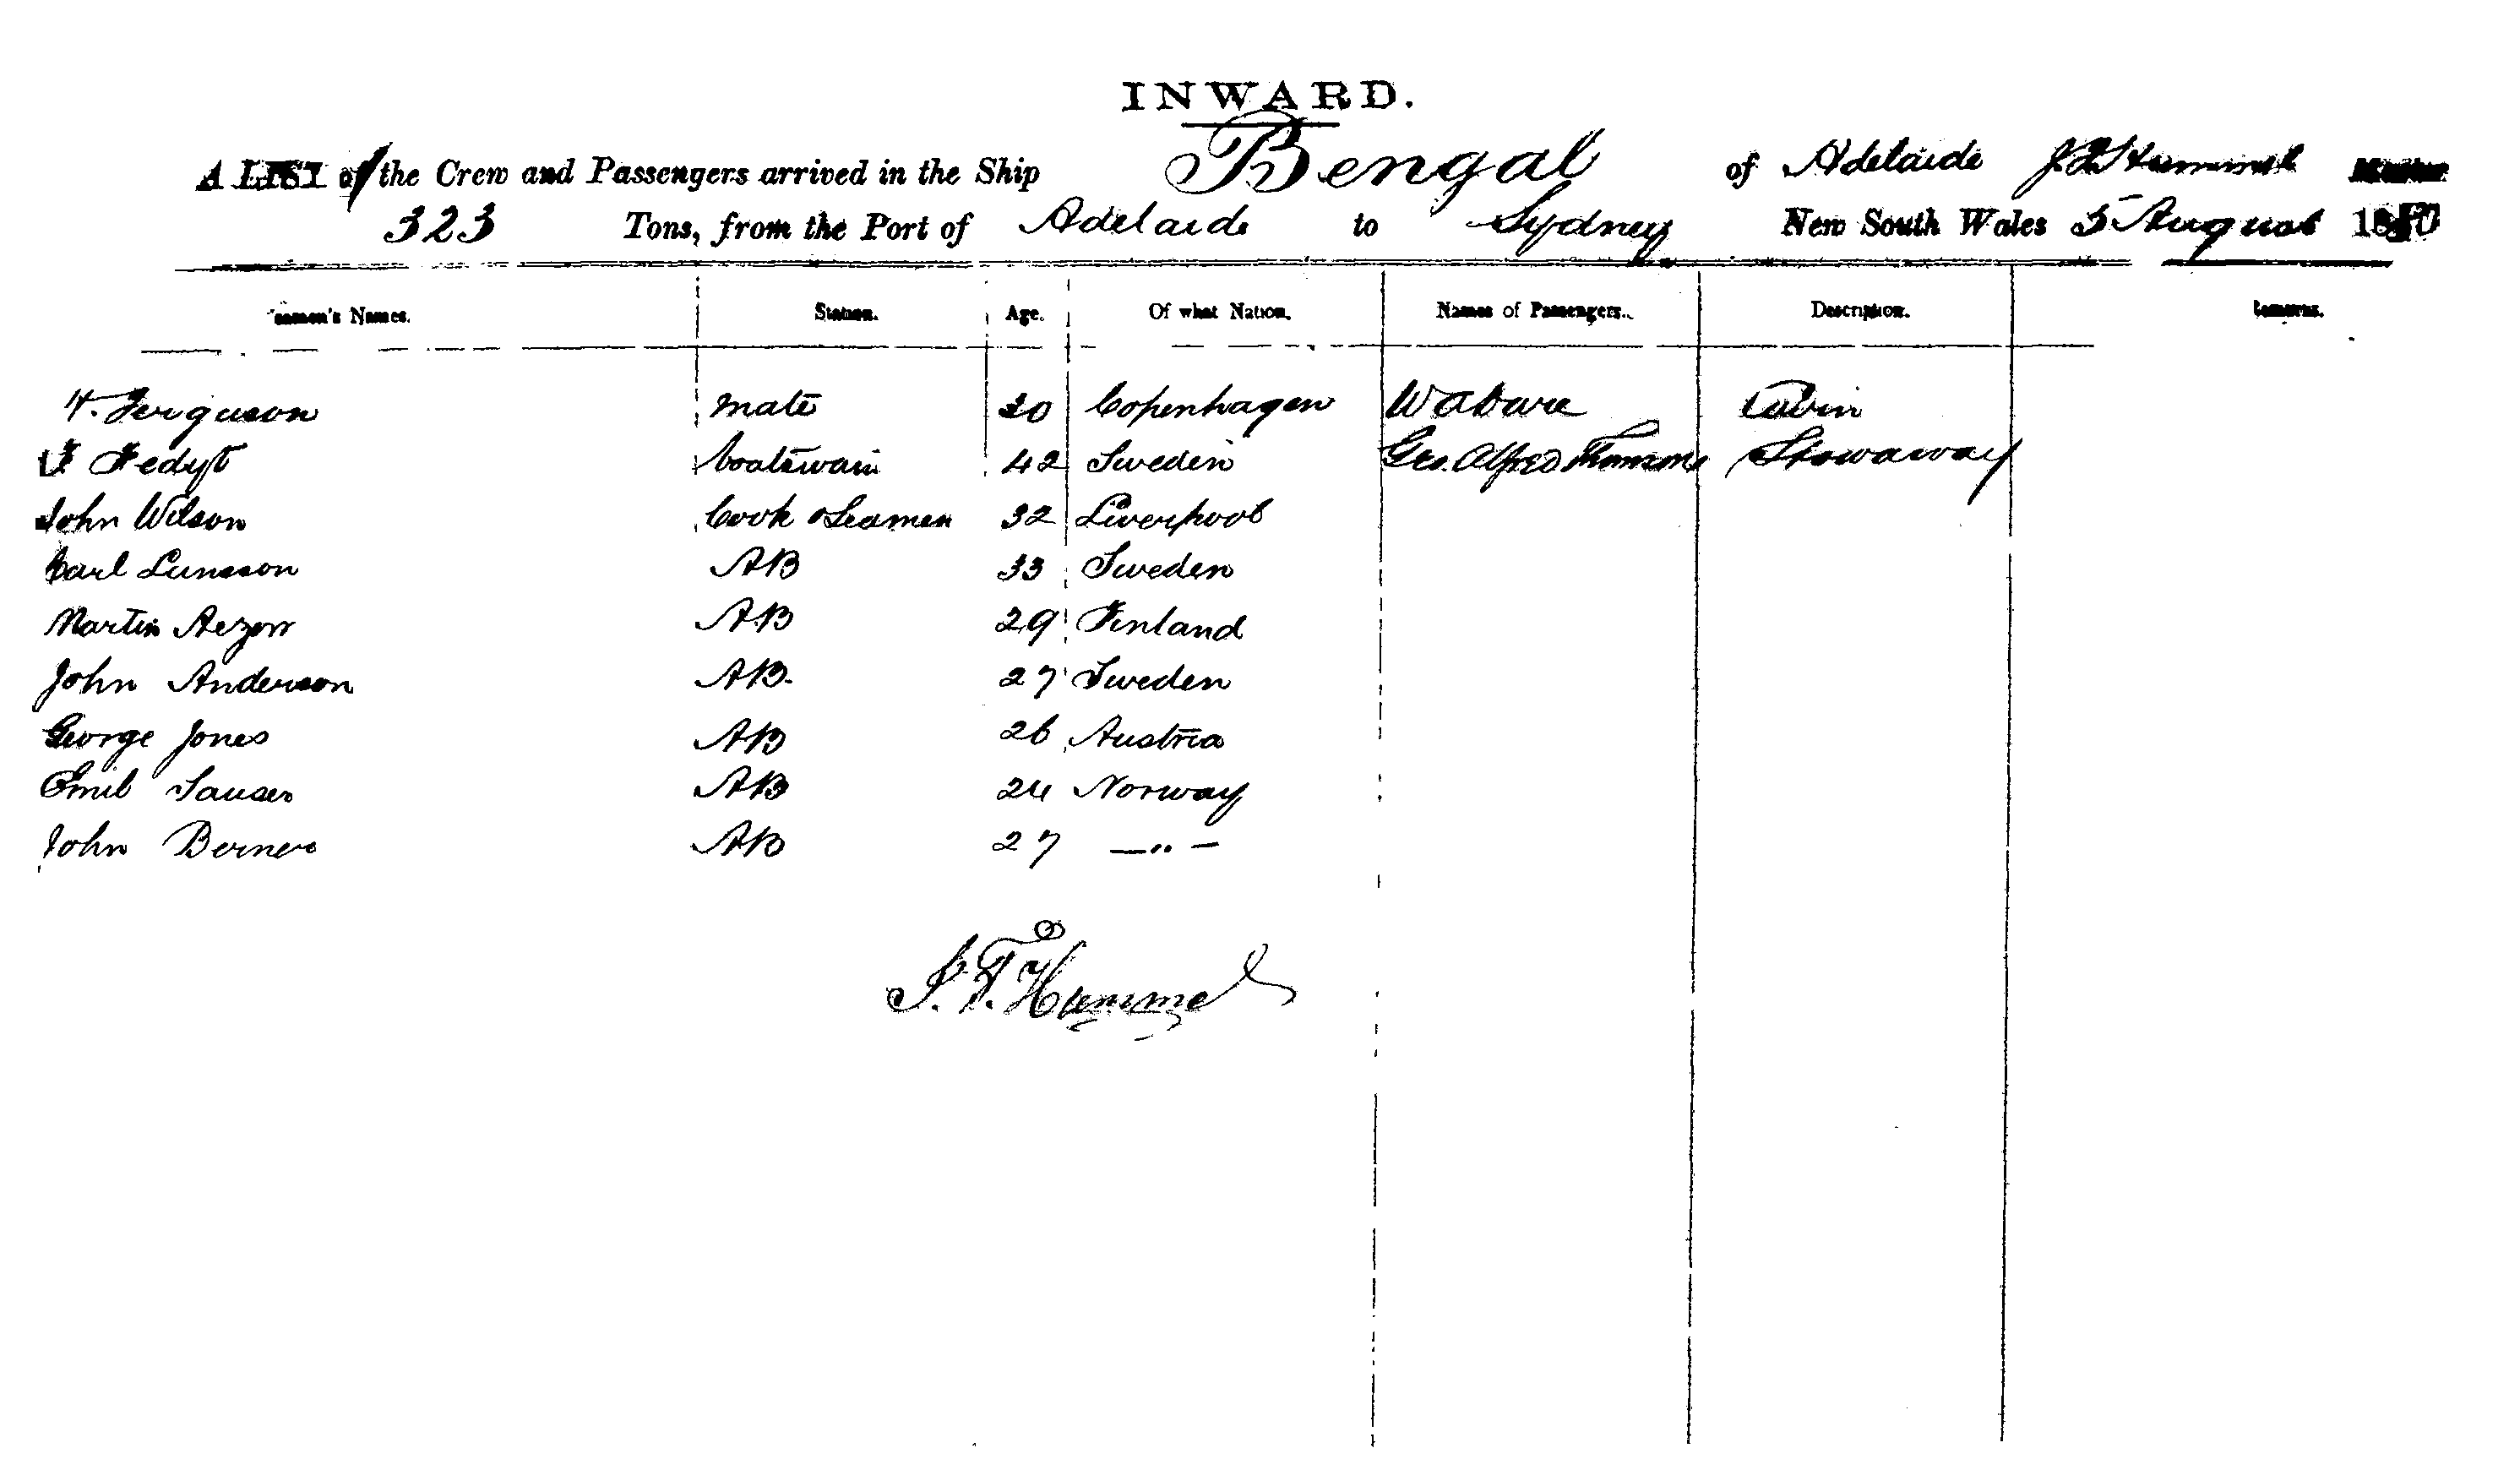 INWARD.
A LIST of the Crew and Passengers arrived in the Ship Bengal of Adelaide J. F. Hummel Master
323 Tons, from the Port of Adelaide to Sydney New South Wales 5 August
Seamen's Names. Station. Age. Of what Nation. Names of Passengers. Description. Remarks.
H. Ferguson mate 30 Copenhagen Cabin
boatswain 42 Sweden Geo. Alfred Stowaway
John Wilson Cook & Seamen 32 Liverpool
Carl AB 33 Sweden
Martin AB 29 Finland
John Anderson AB. 27 Sweden
George Jones AB 26 Austria
Emil AB 24 Norway
John Berner AB 27 — " —
J. F. Hummel